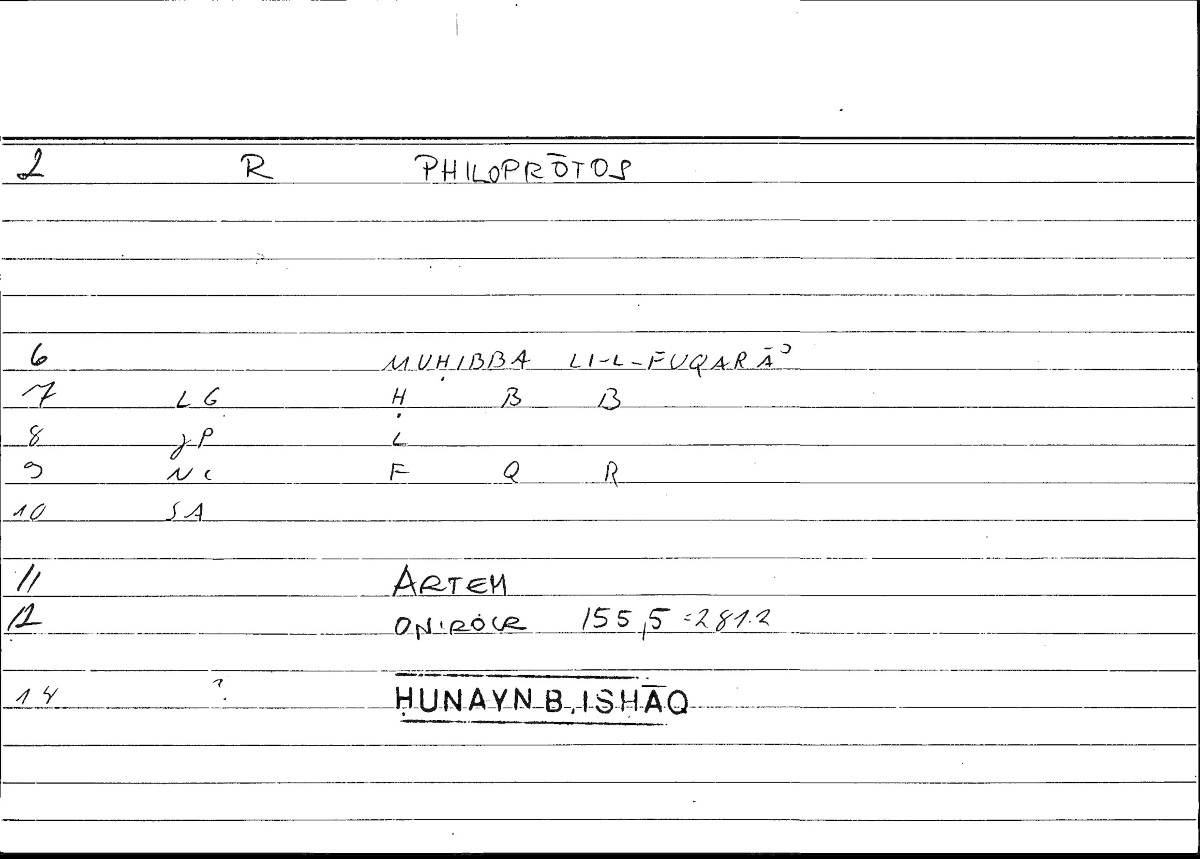 2 R PHILOPRŌTOS
6 MUḤIBBA LI-L-FUQARĀʾ
7 LG Ḥ B B
8 JP L
9 NC F Q R
10 SA
11 ARTEM
12 ONIROCR 155,5 = 281.2
14 ? ḤUNAYN B. ISḤĀQ